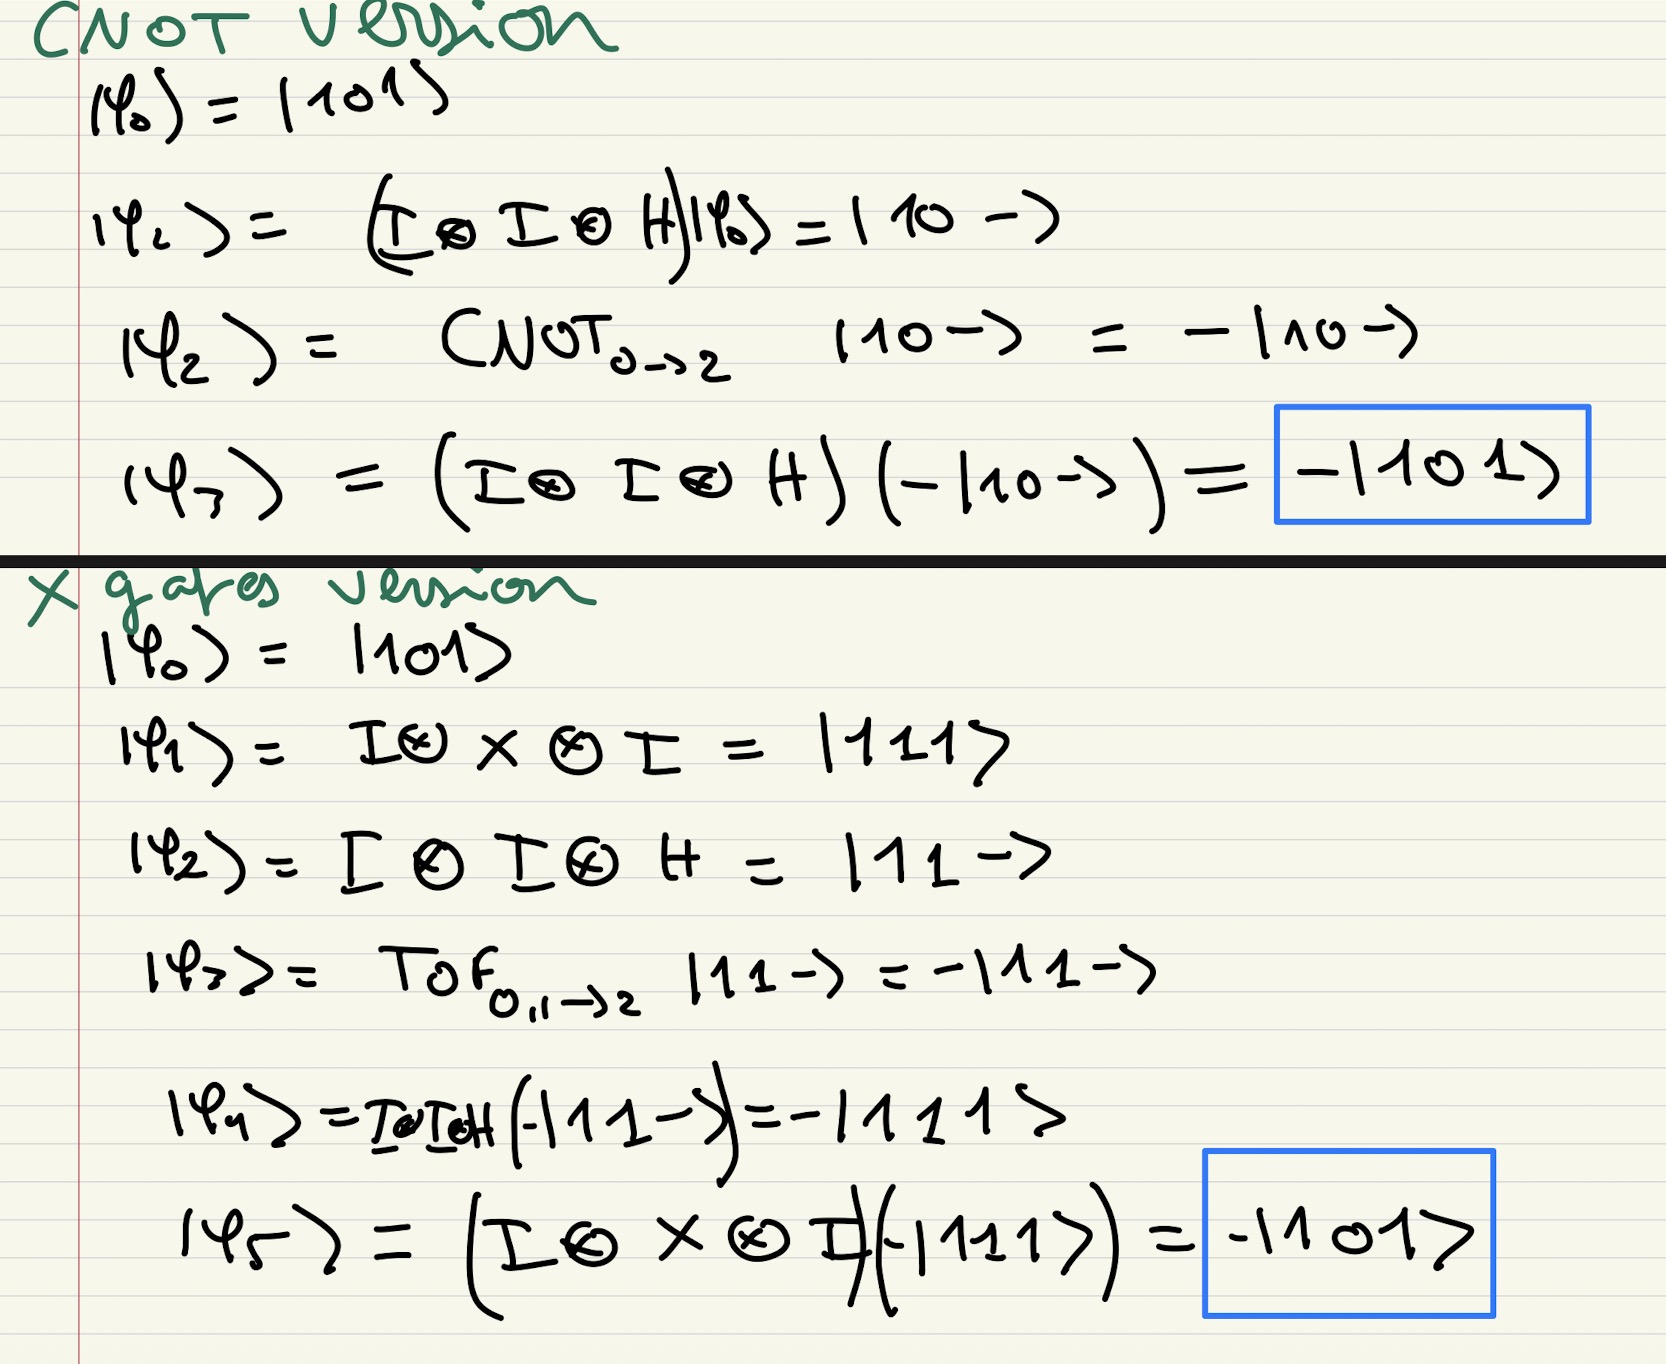 CNOT version
|φ₀⟩ = |101⟩
|φ₂⟩ = (I ⊗ I ⊗ H)|φ₀⟩ = |10-⟩
|φ₂⟩ = CNOT₀→₂ |10-⟩ = -|10-⟩
|φ₃⟩ = (I ⊗ I ⊗ H)(-|10-⟩) = -|101⟩
X gates version
|φ₀⟩ = |101⟩
|φ₁⟩ = I ⊗ X ⊗ I = |111⟩
|φ₂⟩ = I ⊗ I ⊗ H = |11-⟩
|φ₃⟩ = TOF₀,₁→₂ |11-⟩ = -|11-⟩
|φ₄⟩ = I⊗I⊗H(-|11-⟩) = -|111⟩
|φ₅⟩ = (I ⊗ X ⊗ I)(-|111⟩) = -|101⟩